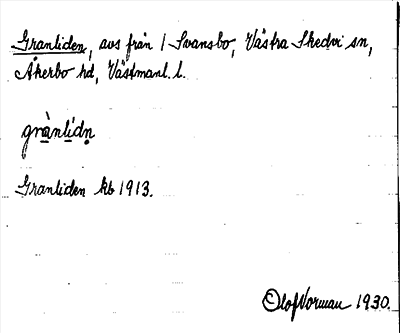 Grantiden, avs från 1 Svansbo, Västra Skedvi sn,
Åkerbo hd, Västmanl. l.
gràntidn
Grantiden kb 1913.
Olof Norman 1930.